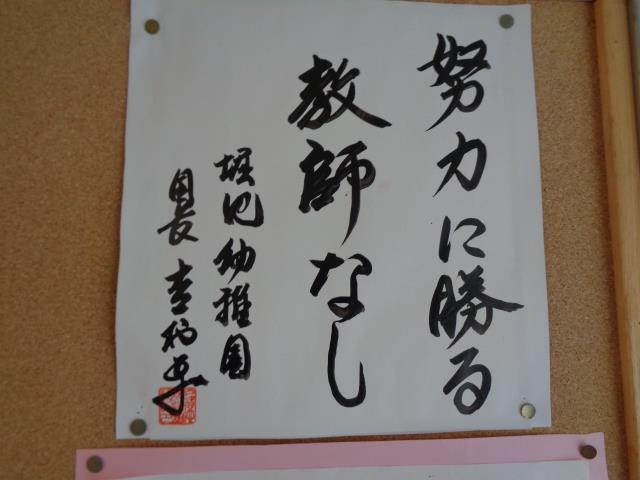 努力に勝る
教師なし
堀池幼稚園
園長